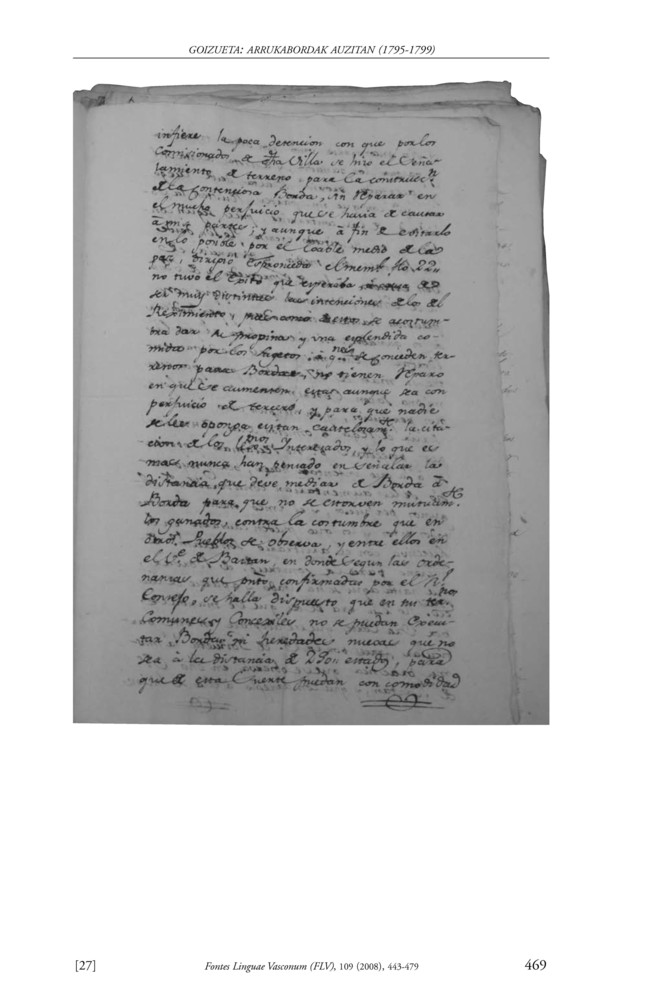 GOIZUETA: ARRUKABORDAK AUZITAN (1795-1799)
infiere la poca detencion con que por los
Comisionados de dha Villa se hizo el Seña-
lamiento de terreno para la construcc.n
de la contenciosa Borda, sin reparar en
el mucho perjuicio que se havia de causar
a mi parte; y aunque à fin de evitarlo
en lo posible por el loable medio de la
paz, dirijio el memt.
no tuvo el exito que esperaba
ser muy distintas las intenciones de lo del
Regimiento, y
bra dar de propinas y una esplendida co-
mida por los sugetos à q.nes se conceden te-
rrenos para Bordas, no tienen reparo
en que se aumenten estas aunque sea con
perjuicio de tercero, y para que nadie
se les oponga la cita-
cion de los Interesados, y lo que es
mas, nunca han pensado en señalar la
distancia que deve mediar de Borda à
Borda para que no se estorven mutuam.te
los ganados, contra la costumbre que en
Pueblos se observa, y entre ellos en
el de Baztan, en donde segun las orde-
nanzas que confirmadas por el Rl.
Consejo, se halla dispuesto que en sus
Comunes, y Concejiles no se puedan Execu-
tar Bordas ni heredades nuevas que no
sea à la distancia de estados, para
que de esta suerte puedan con comodidad
[27]
Fontes Linguae Vasconum (FLV), 109 (2008), 443-479
469